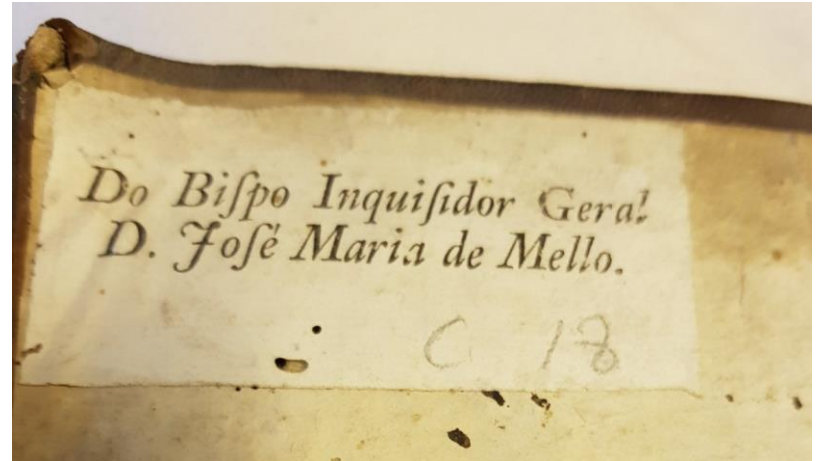 Do Biſpo Inquiſidor Geral
D. Joſé Maria de Mello.
C 18